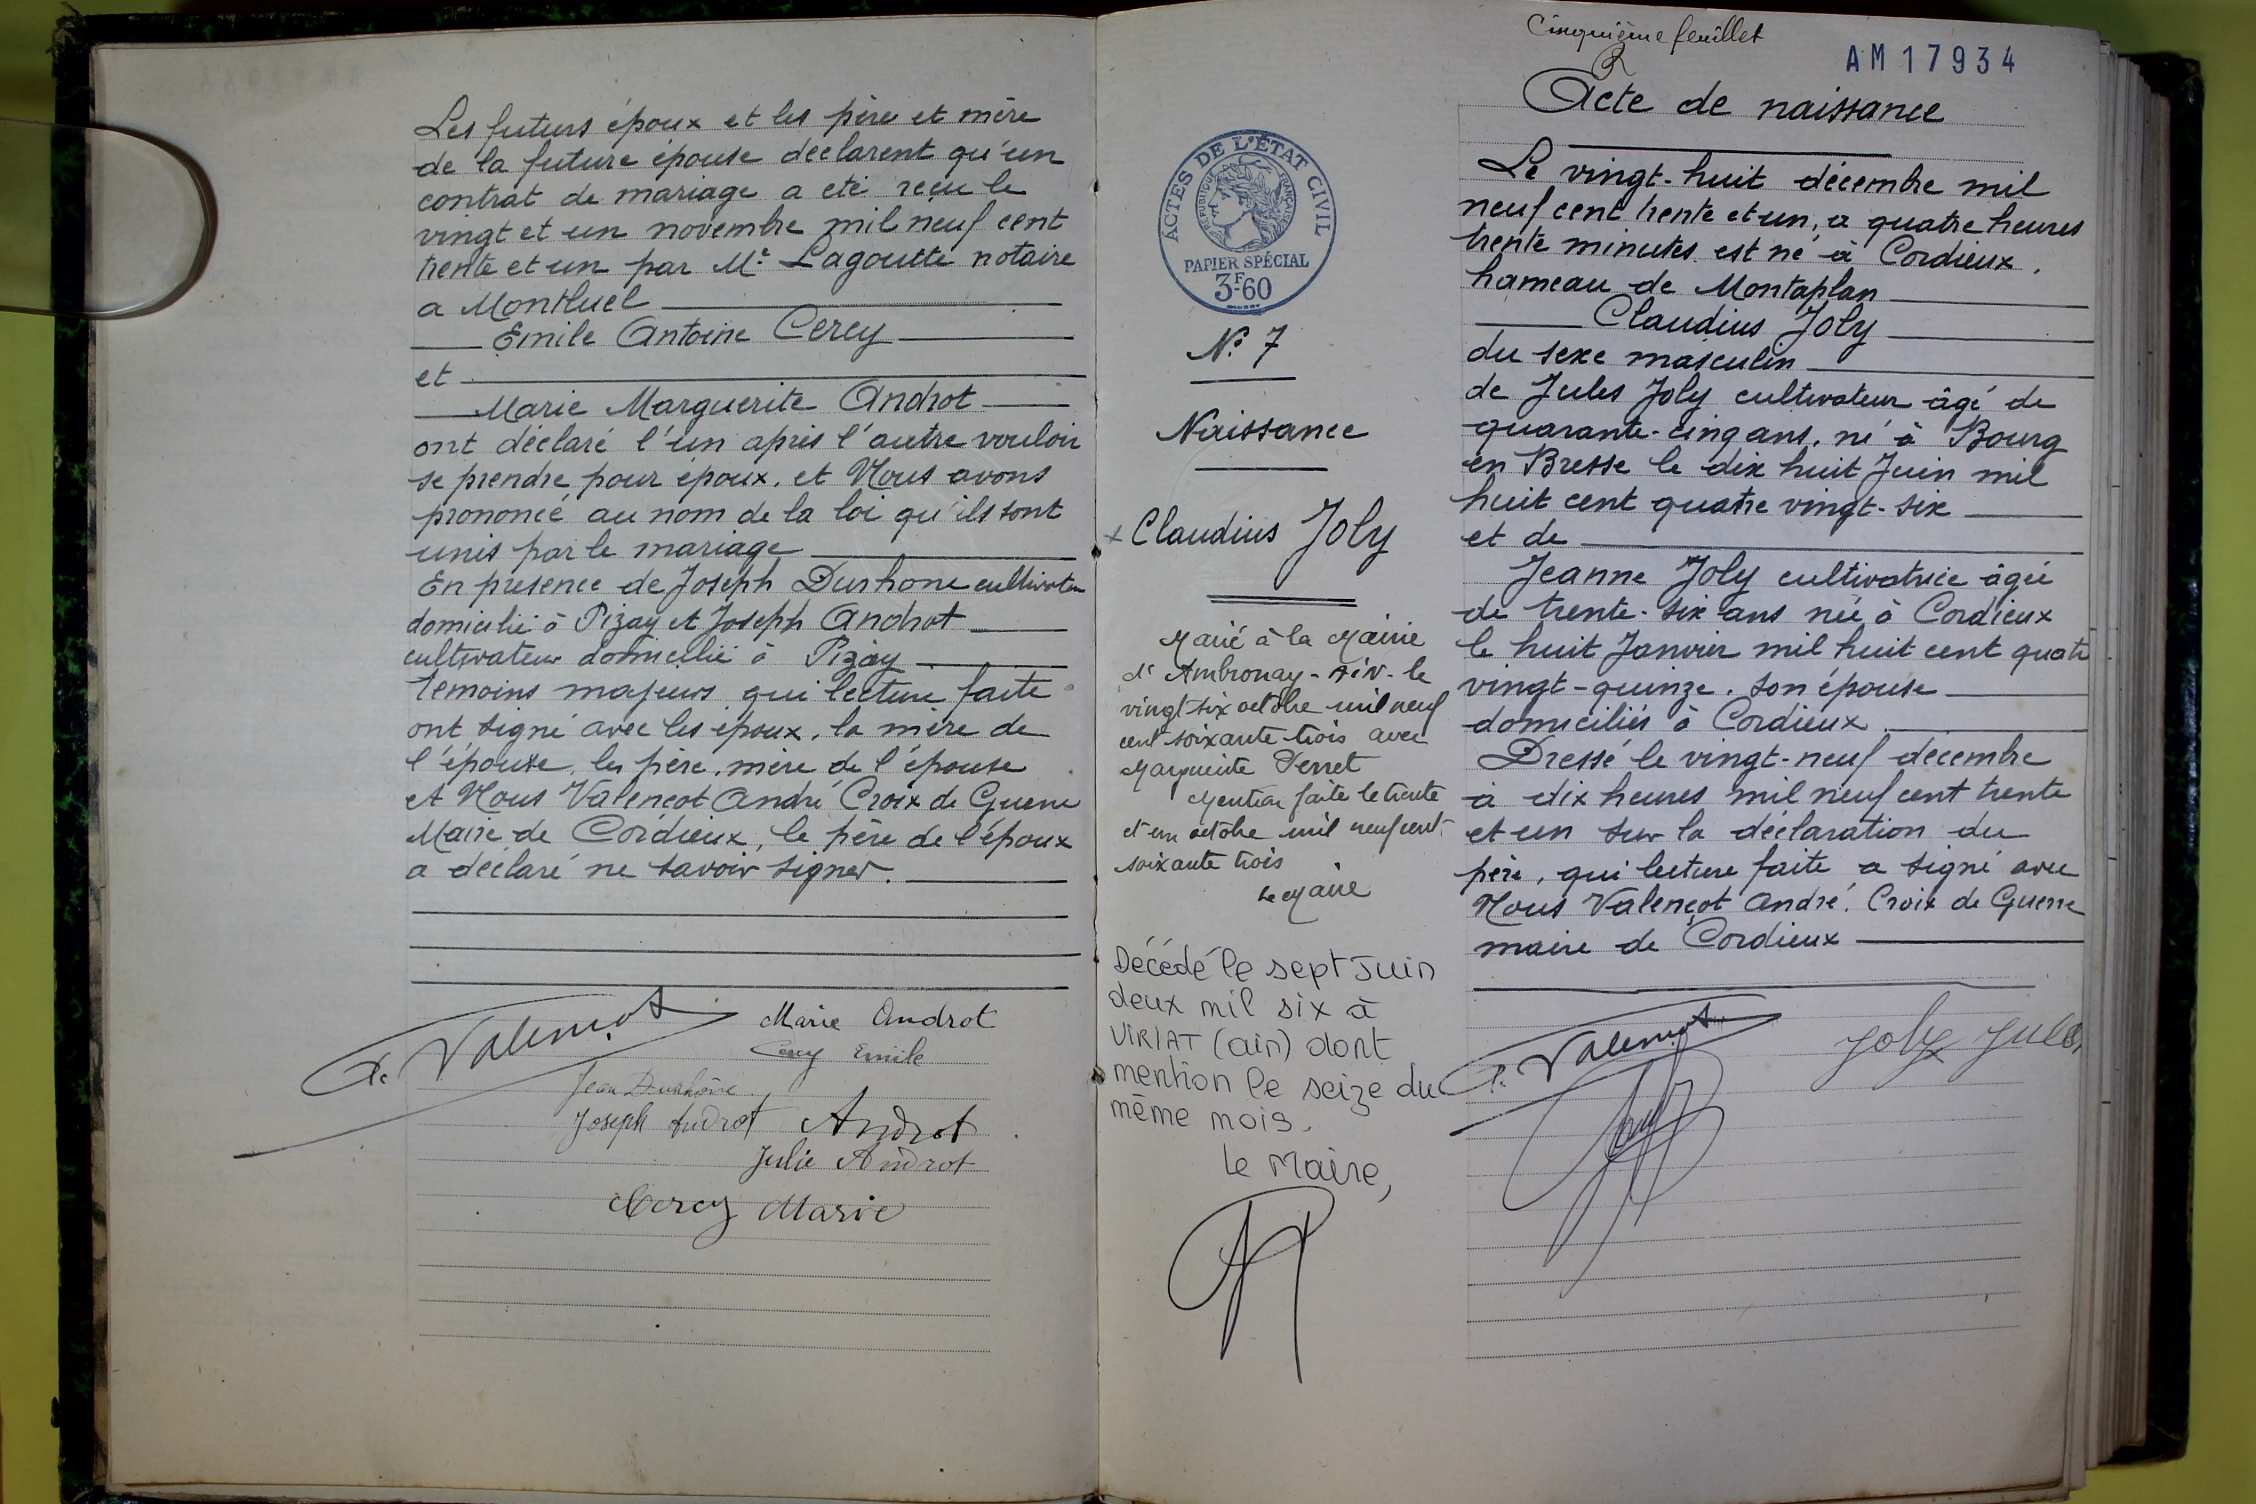 Les futurs époux et les père et mère
de la future épouse déclarent qu'un
contrat de mariage a été reçu le
vingt et un novembre mil neuf cent
trente et un par Me Lagoutte notaire
a Montluel
Emile Antoine Cercy
et
Marie Marguerite Androt
ont déclaré l'un après l'autre vouloir
se prendre pour époux. et Nous avons
prononcé au nom de la loi qu'ils sont
unis par le mariage
En presence de Joseph Durhone cultivateur
domicilié à Pizay et Joseph Androt
cultivateur domicilié à Pizay
temoins majeurs qui lecture faite
ont signé avec les époux, la mère de
l'épouse, les père, mère de l'épouse
et Nous Valençot André Croix de Guerre
Maire de Cordieux, le père de l'époux
a déclaré ne savoir signer.
A. Valençot
Marie Androt
Cercy Emile
Jean Durhône
Joseph Androt
Androt
Julie Androt
Cercy Marie
Cinquième feuillet
AM17934
ACTES DE L'ÉTAT CIVIL
RÉPUBLIQUE FRANÇAISE
PAPIER SPÉCIAL
3F-60
No 7
Naissance
x Claudius Joly
Marié à la Mairie
d'Ambronay - Ain - le
vingt six octobre mil neuf
cent soixante trois avec
Marguerite Perret
Mention faite le trente
et un octobre mil neuf cent
soixante trois
Le Maire
Décédé le sept Juin
deux mil six à
VIRIAT (ain) dont
mention le seize du
même mois.
Le Maire,
Acte de naissance
Le vingt-huit décembre mil
neuf cent trente et un, a quatre heures
trente minutes est né à Cordieux,
hameau de Montaplan
Claudius Joly
du sexe masculin
de Jules Joly cultivateur âgé de
quarante-cinq ans, né à Bourg
en Bresse le dix huit Juin mil
huit cent quatre vingt-six
et de
Jeanne Joly cultivatrice âgée
de trente-six ans née à Cordieux
le huit Janvier mil huit cent quatre
vingt-quinze. son épouse
domiciliés à Cordieux
Dressé le vingt-neuf décembre
à dix heures mil neuf cent trente
et un sur la déclaration du
père, qui lecture faite a signé avec
Nous Valençot André, Croix de Guerre
maire de Cordieux
A. Valençot
Joly Jules